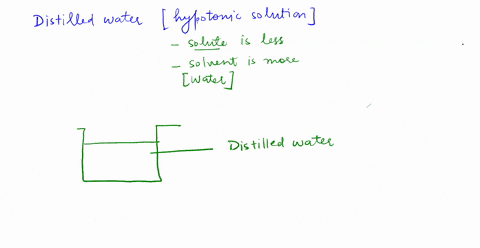 Distilled water [hypotonic solution]
- solute is less
- solvent is more
[water]
Distilled water